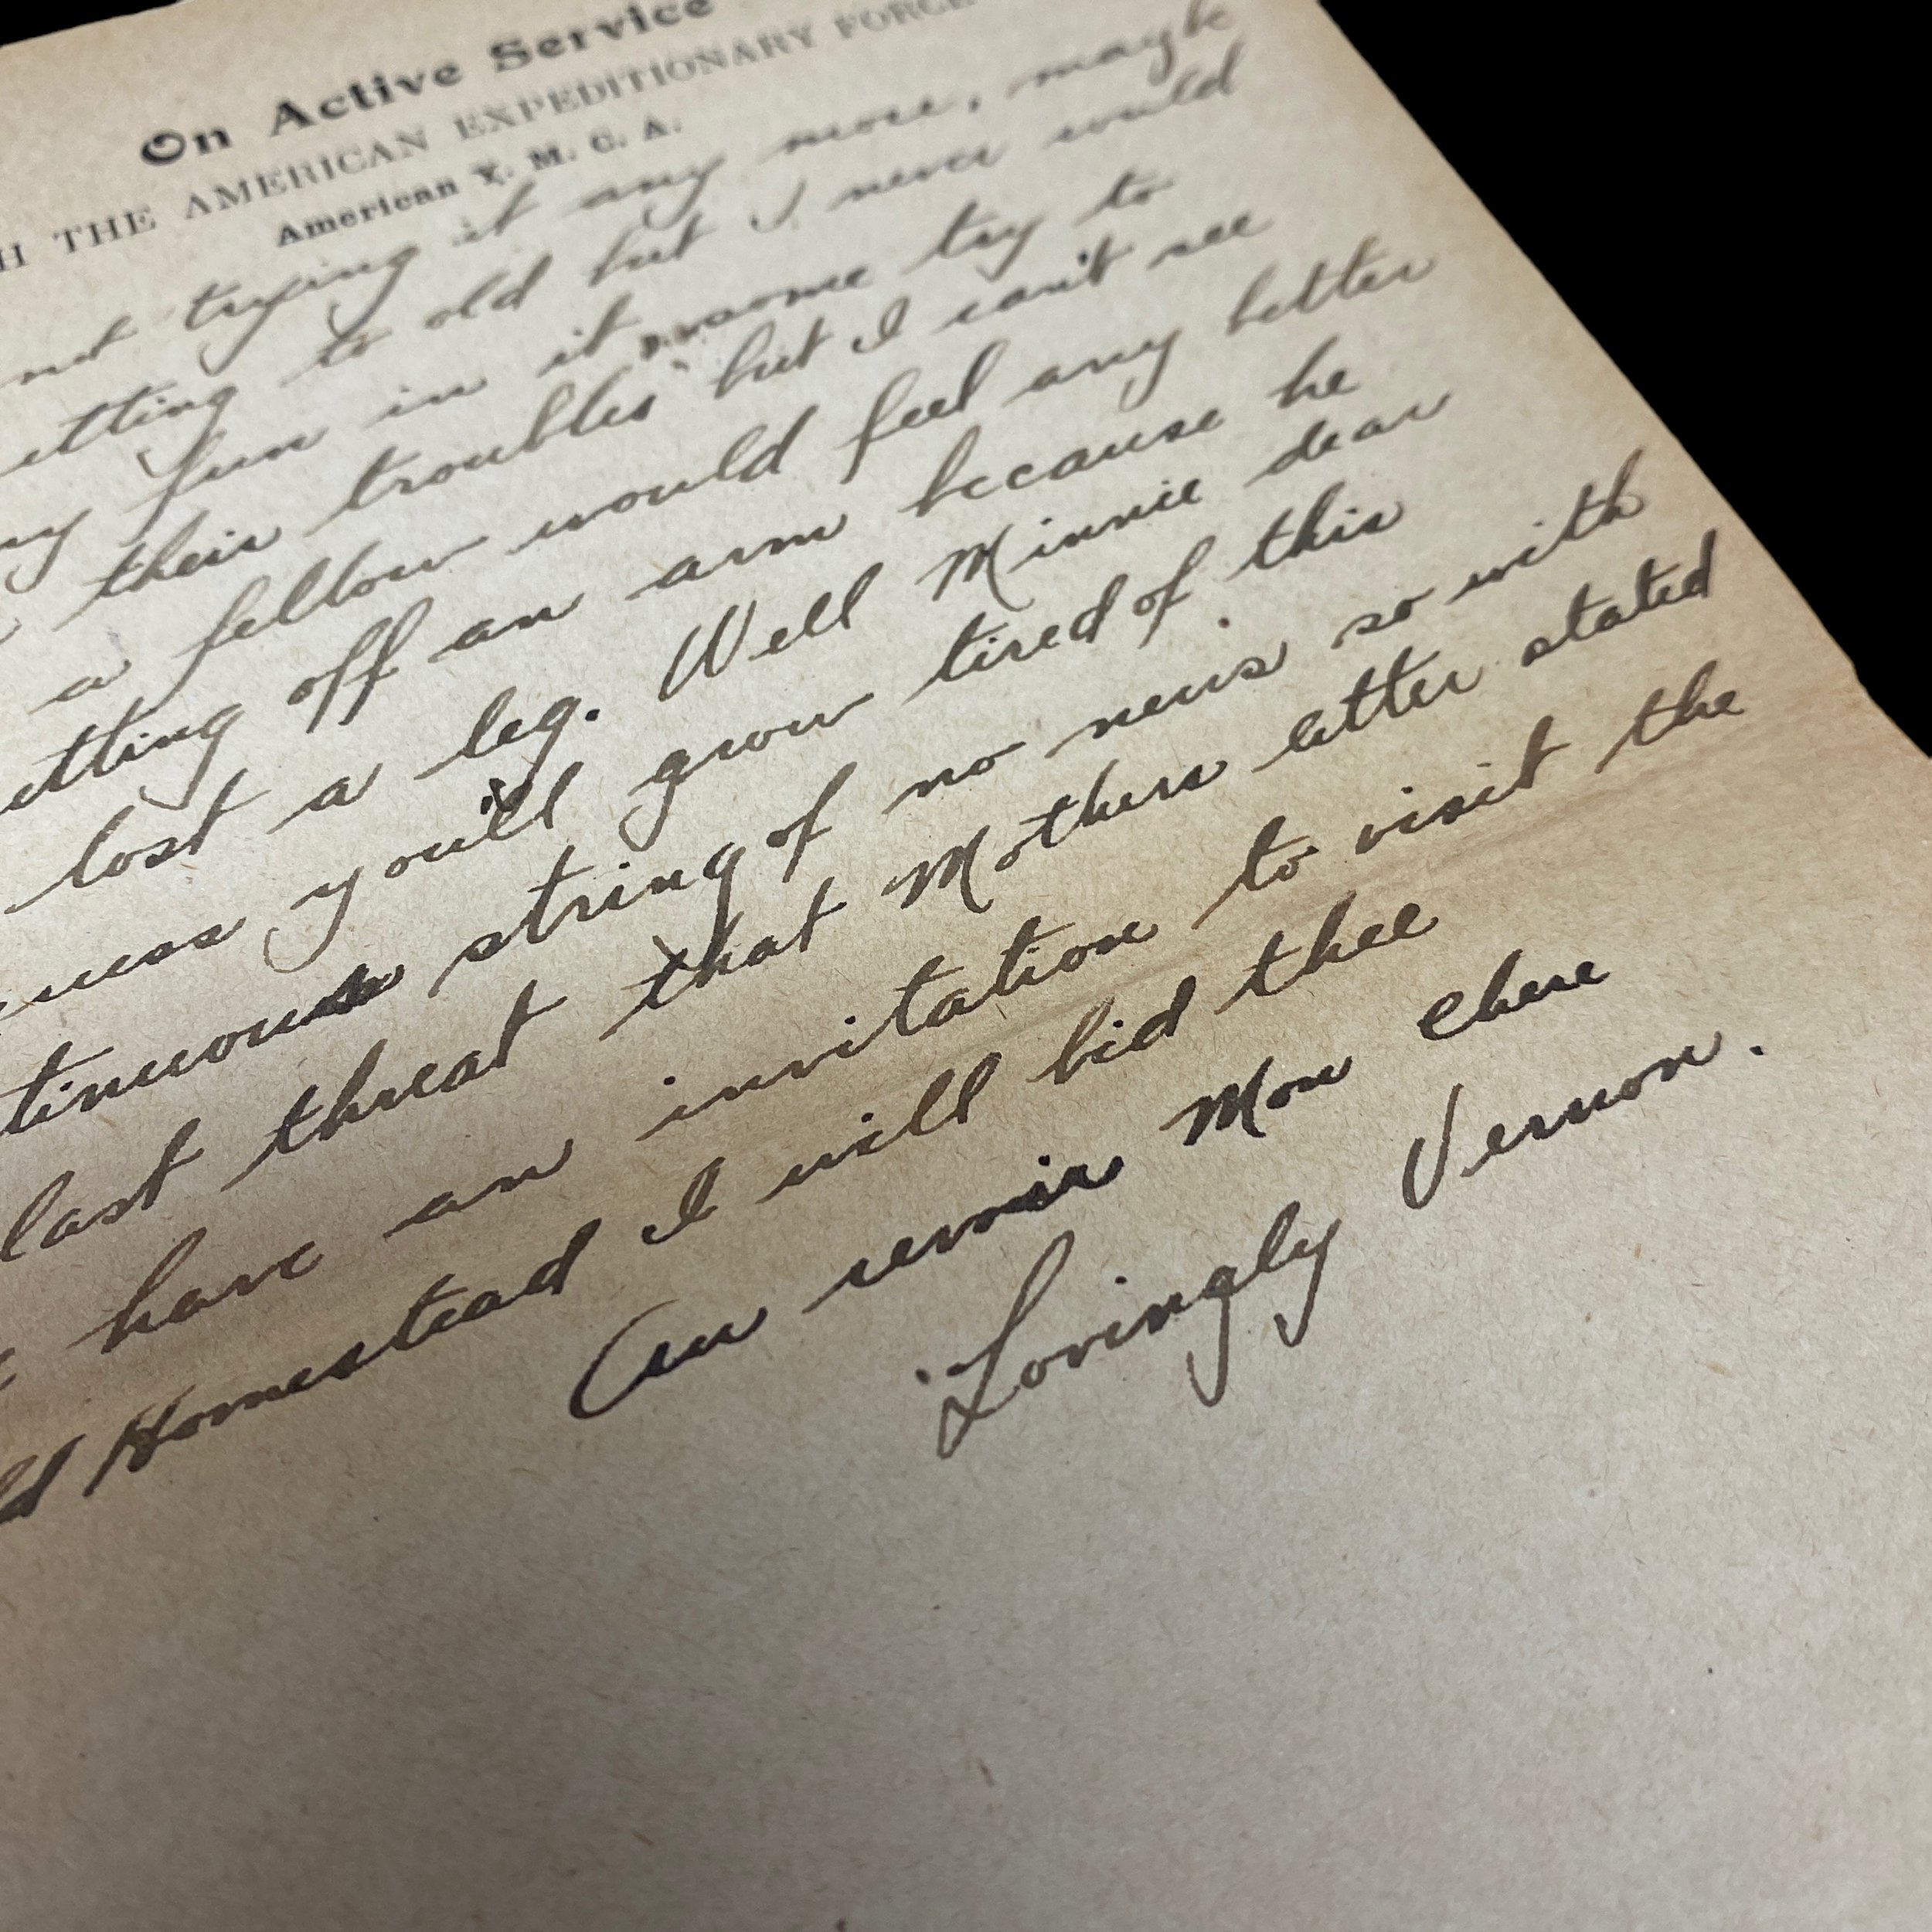 On Active Service
H THE AMERICAN EXPEDITIONARY FORCE
American Y. M. C. A.
not trying it any more, maybe
etting to old but I never could
ny fun in it some try to
their troubles but I can't see
a fellow would feel any better
etting off an arm because he
lost a leg. Well Minnie dear
uess you'll grow tired of this
tinuous string of no news so with
last threat that Mothers letter stated
have an invitation to visit the
ld Homestead I will bid thee
Au revoir Mon Chere
Lovingly Vernon.